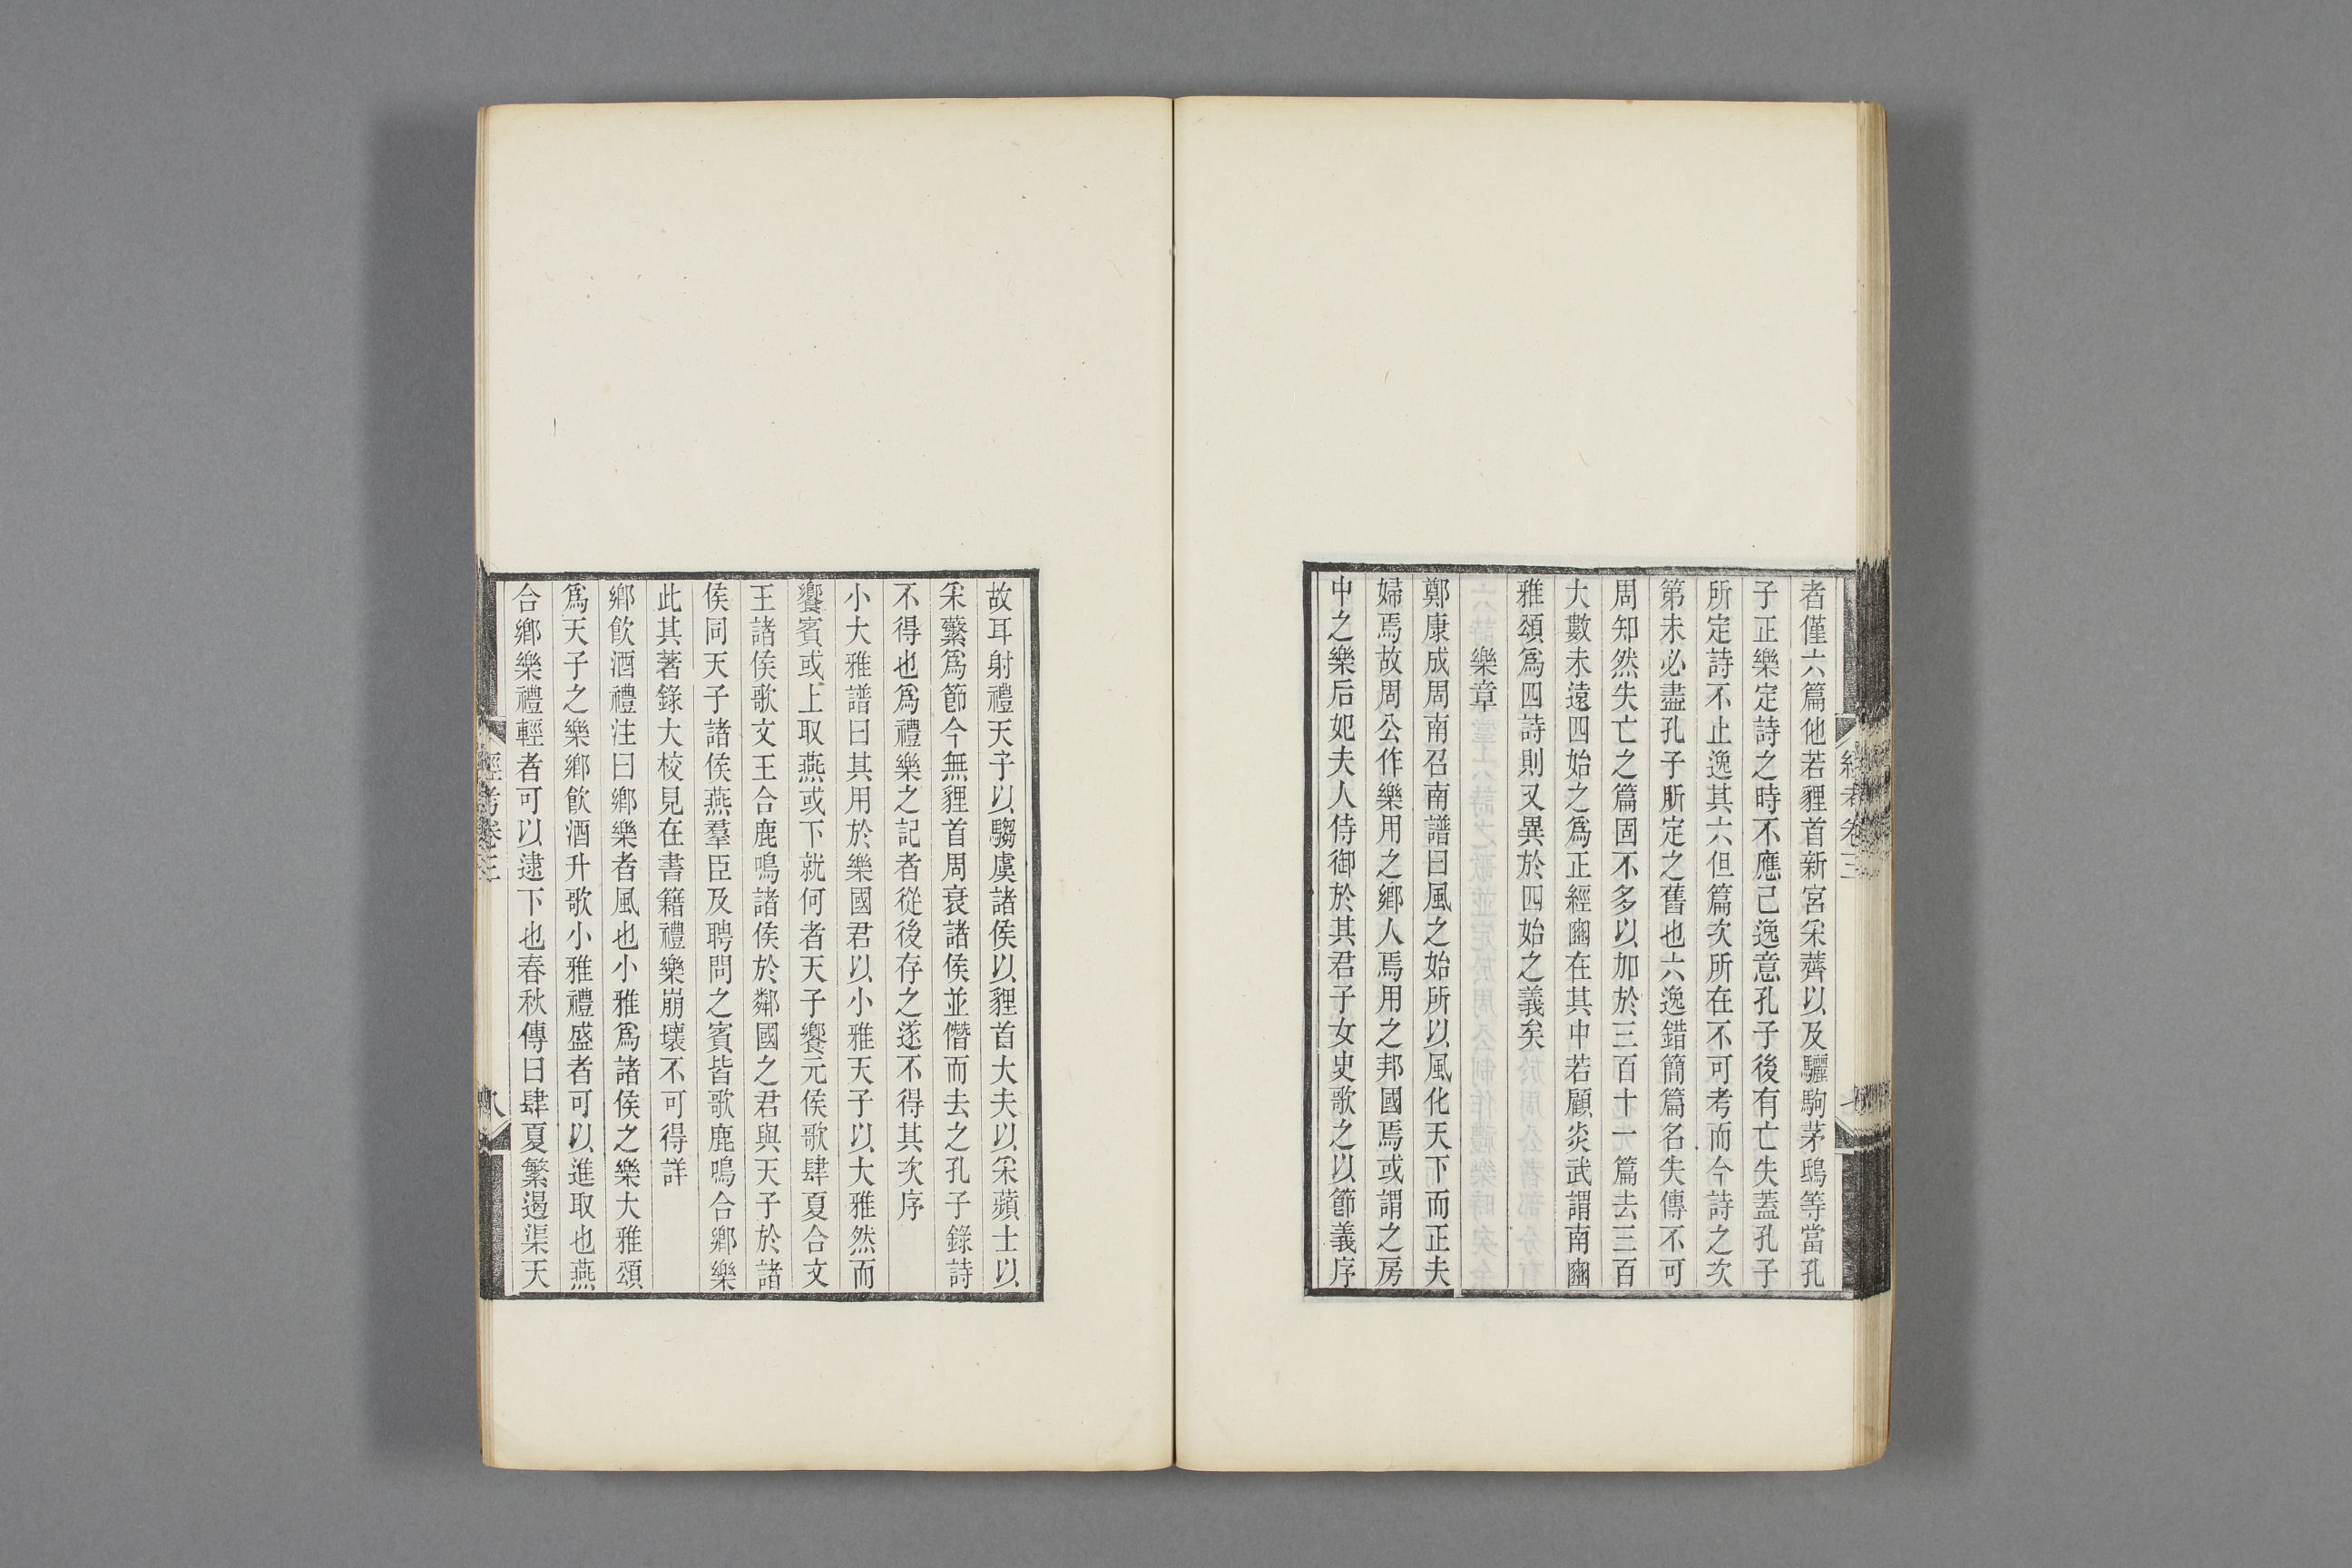 經考卷三
七
者僅六篇他若貍首新宮采薺以及驪駒茅鴟等當孔
子正樂定詩之時不應已逸意孔子後有亡失蓋孔子
所定詩不止逸其六但篇次所在不可考而今詩之次
第未必盡孔子所定之舊也六逸錯簡篇名失傳不可
周知然失亡之篇固不多以加於三百十一篇去三百
大數未遠四始之爲正經豳在其中若顧炎武謂南豳
雅頌爲四詩則又異於四始之義矣
樂章
鄭康成周南召南譜曰風之始所以風化天下而正夫
婦焉故周公作樂用之鄉人焉用之邦國焉或謂之房
中之樂后妃夫人侍御於其君子女史歌之以節義序
故耳射禮天子以騶虞諸侯以貍首大夫以采蘋士以
采蘩爲節今無貍首周衰諸侯並僭而去之孔子錄詩
不得也爲禮樂之記者從後存之遂不得其次序
小大雅譜曰其用於樂國君以小雅天子以大雅然而
饗賓或上取燕或下就何者天子饗元侯歌肆夏合文
王諸侯歌文王合鹿鳴諸侯於鄰國之君與天子於諸
侯同天子諸侯燕羣臣及聘問之賓皆歌鹿鳴合鄉樂
此其著錄大校見在書籍禮樂崩壞不可得詳
鄉飲酒禮注曰鄉樂者風也小雅爲諸侯之樂大雅頌
爲天子之樂鄉飲酒升歌小雅禮盛者可以進取也燕
合鄉樂禮輕者可以逮下也春秋傳曰肆夏繁遏渠天
經考卷三
八